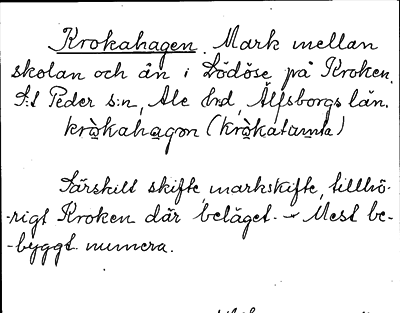 Krokahagen. Mark mellan
skolan och ån i Lödöse på Kroken.
S:t Peder s:n, Ale hd, Älfsborgs län.
kròkahagən (kròkatamta)
Särskilt skifte, markskifte, tillhö-
-rigt Kroken där beläget. - Mest be-
-byggt numera.